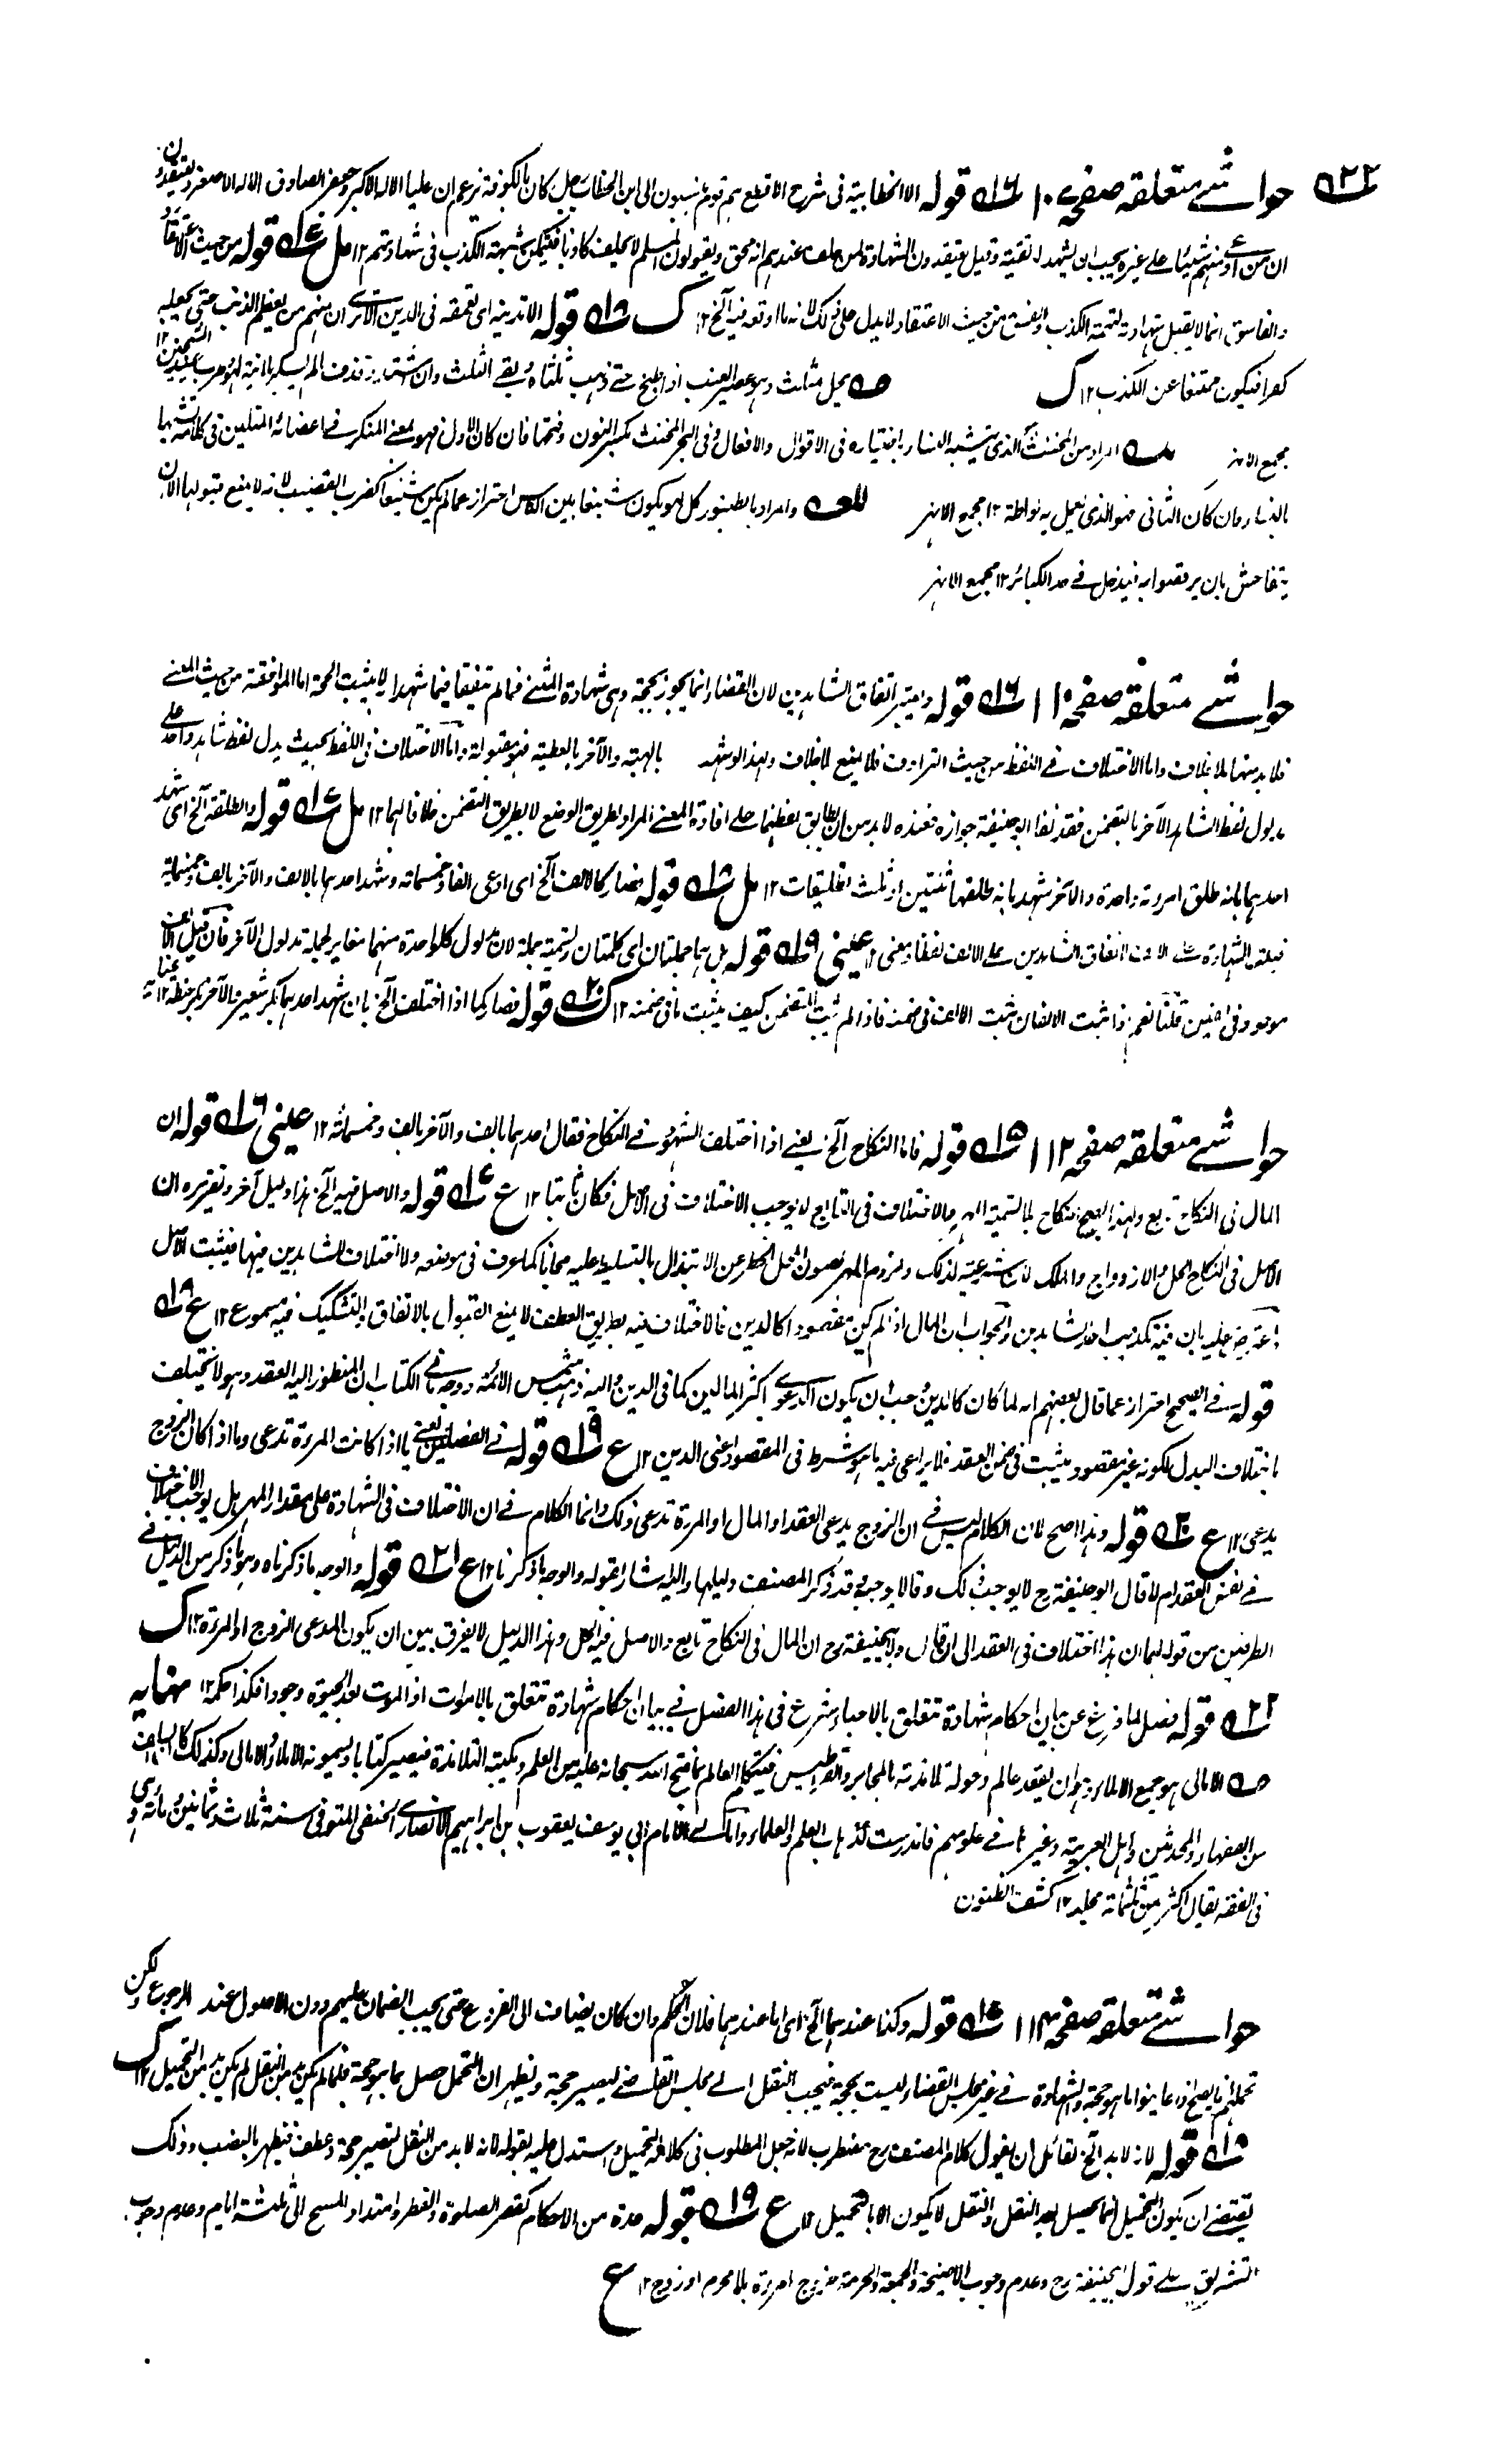 ۵۲۲ حواشے متعلقہ صفحہ ۱۰۷ ۱۶ قوله الا الخطابية فى شرح الاقطع هم قوم ينسبون الى ابن الخطاب رجل كان بالكوفة يزعم ان عليا الاله الاكبر وجعفر الصادق الاله الاصغر ويعتقدون
ان من ادعى منهم شيئا على غيره يجب ان يشهد له بقية وقيل بقيته دن الشهادة لمن حلف عندهم انه محق ويقولون المسلم لا يحلف كاذبا فتمكن شبهة الكذب فى شهادتهم ١٢ ل ۱۷ قوله من حيث الاعتقاد
والفاسق انما لا يقبل شهادته لتهمة الكذب والفسق من حيث الاعتقاد لا يدل على ذلك لانه ما اوقعه فيه الخ ١٢ ك ۱۸ قوله الا تدينه اى تعمقه فى الدين الا ترى ان منهم من يعظم الذنب حتى يجعله
كفرا فيكون ممتنعا عن الكذب ١٢ ك ص يحل مثلث وهو عصير العنب اذا طبخ حتے ذهب ثلثاه و بقے الثلث وان اشتد وقذف
مجمع الانهر المراد من المخنث الذى يتشبه النساء باختياره فى الاقوال والافعال وفى البحر المخنث بكسر النون وفتحها فان كان الاول فهو بمعنى المنكسر فے اعضائه المتلين فى كلامه تشبها
بالنساء وان كان الثانى فهو الذى يعمل به لواطة ١٢ مجمع الانهر والمراد بالطنبور كل لهو يكون شنيعا بين الناس احتراز عما لم يكن شنيعا كضرب القضيب لانه لا يمنع قبولها الا ان
يتفاحش بان يرقصوا به فيدخل فے حد الكبائر ١٢ مجمع الانهر
حواشے متعلقہ صفحہ ۱۱۰ ۱۶ قوله ويعتبر اتفاق الشاهدين لان القضاء انما يجوز بحجة وهى شهادة المثنے فما لم يتفقا فيما شهدا لا يثبت الحجة اما الموافقة من حيث المعنے
فلا بد منها بلا خلاف واما الاختلاف فے اللفظ من حيث الترادف فلا يمنع بلا خلاف ولهذا لو شهد بالهبة والآخر بالعطية فهو مقبولة واما الاختلاف فى اللفظ بحيث يدل لفظ شاهد واحد على
مدلول لفظ الشاهد الآخر بالتضمن فقد نفا ابو حنيفة جوازه فعنده لا بد من ان يطابق لفظهما على افادة المعنے المراد بطريق الوضع لا بطريق التضمن خلافا لهما ١٢ ل ۱۷ قوله والطلقة الخ اى شهد
احدهما بانه طلق امرءته واحدة والآخر شهد بانه طلقها ثنتين او ثلث تطليقات ١٢ ل ۱۸ قوله فصار كالالف الخ اى ادعى الفا وخمسمائة وشهد احدهما بالالف والآخر بالف وخمسمائة
فيقبل الشهادة على الالف لاتفاق الشاهدين على الالف لفظا ومعنى ١٢ عينى ۱۹ قوله بل هما جملتان اى كلمتان وتسمية جملة لان مدلول كلواحدة منهما مغاير لجملة مدلول الآخر فان قيل الالف
موجود فى الفين قلنا نعم اذا ثبت الالفان ثبت الالف فى ضمنه فاذا لم يثبت المتضمن كيف يثبت ما فى ضمنه ١٢ ك ۲۰ قوله فصار كما اذا اختلف الخ بان شهد احدهما بكر شعير والآخر بكر حنطة ١٢
حواشے متعلقہ صفحہ ۱۱۲ ۱۵ قوله فاما النكاح الخ يعنے اذا اختلف الشهود فے النكاح فقال احدهما بالف والآخر بالف وخمسمائة ١٢ عينى ۱۶ قوله ان
المال فى النكاح تبع ولهذا يصح النكاح بلا تسمية المهر والاختلاف فى التابع لا يوجب الاختلاف فى الاصل فكان ثابتا ١٢ ع ۱۷ قوله والاصل فيه الخ هذا دليل آخر وتقريره ان
الاصل فى النكاح الحل والازدواج والملك لان شرعيته لذلك ولزوم المهر لصون المحل الخطر عن الابتذال بالتسلط عليه مجانا كما عرف فى موضعه ولا اختلاف للشاهدين فيها فيثبت الاصل
اعترض عليه بان فيه تكذيب احد الشاهدين والجواب ان المال اذا لم يكن مقصودا كالدين فالاختلاف فيه بطريق العطف لا يمنع القبول بالاتفاق والتشكيك فيه مسموع ١٢ ع ۱۸
قوله فے الصحيح احتراز عما قال بعضهم انه لما كان كالدين وجب ان يكون الدعوى اكثر المالين كما فى الدين واليه ذهب شمس الائمة ووجه ما فى الكتاب ان المنظور اليه العقد وهو لا يختلف
باختلاف البدل لكونه غير مقصود يثبت فى ضمن العقد فلا يراعى فيه ما هو شرط فى المقصود اعنى الدين ١٢ ع ۱۹ قوله فے الفصلين يعنى ما اذا كانت المرءة تدعى وما اذا كان الزوج
يدعى ١٢ ع ۲۰ قوله وهذا اصح لان الكلام ليس فے ان الزوج يدعى العقد او المال او المرءة تدعى ذلك وانما الكلام فے ان الاختلاف فى الشهادة على مقدار المهر هل يوجب الاختلاف
فے نفس العقد ام لا قال ابو حنيفة رح لا يوجب ذلك وقالا يوجبه وقد ذكر المصنف دليلهما واليه اشار بقوله والوجه ما ذكرنا ١٢ ع ۲۱ قوله والوجه ما ذكرناه وهو ما ذكر من الدليل فے
الطرفين من قولهما ان هذا اختلاف فى العقد الى ان قال ولابيحنيفة رح ان المال فى النكاح تابع والاصل فيه الحل وهذا الدليل لا يفرق بين ان يكون المدعى الزوج او المرءة ١٢ ك
۲۲ قوله فصل لما فرغ عن بيان احكام شهادة تتعلق بالاحياء شرع فى هذا الفصل فے بيان احكام شهادة تتعلق بالاموات اذ الموت بعد الحيوة وجودا فكذا حكمه ١٢ نهايه
ص الامالى هو جمع الاملاء وهو ان يقعد عالم وحوله تلامذته بالمحابر والقراطيس فيتكلم العالم بما فتح الله سبحانه عليه من العلم ويكتبه التلامذة فيصير كتابا ويسمونه الاملاء والامالى وكذلك كان السلف
من الفقهاء والمحدثين واهل العربية وغيرها فے علومهم فاندرست لذهاب العلم والعلماء وامالى الامام ابى يوسف يعقوب بن ابراهيم الانصارى الحنفى المتوفى سنة ثلاث وثمانين ومائة وهى
فى الفقه يقال اكثر من ثلثمائة مجلد ١٢ كشف الظنون
حواشے متعلقہ صفحہ ۱۱۴ ۱۷ قوله وكذا عندهما الخ اى اما عندهما فلان الحكم وان كان يضاف الى الفروع حتى يجب الضمان عليهم دون الاصول عند الرجوع ولكن
تحملهم انما يصح اذا عاينوا ما هو حجة والشهادة فے غير مجلس القضاء ليست بحجة فيجب النقل الے مجلس القاضے ليصير حجة ويظهر ان التحمل حصل بما هو حجة فلما لم يكن بد من النقل لم يكن بد من التحميل ١٢ ك
۱۸ قوله لانه لا بد الخ لقائل ان يقول كلام المصنف رح مضطرب لانه جعل المطلوب فى كلامه التحميل واستدل عليه بقوله لانه لا بد من النقل لتصير حجة وعطف فيظهر بالنصب وذلك
يقتضے ان يكون التحميل انما يحصل بعد النقل والنقل لا يكون الا بالتحميل ١٢ ع ۱۹ قوله عدة من الاحكام كقصر الصلوة والفطر وامتداد المسح الى ثلثة ايام وعدم وجوب
التشريق على قول ابيحنيفة رح وعدم وجوب الاضحية والجمعة والحرمة خروج امرءة بلا محرم او زوج ١٢ ع